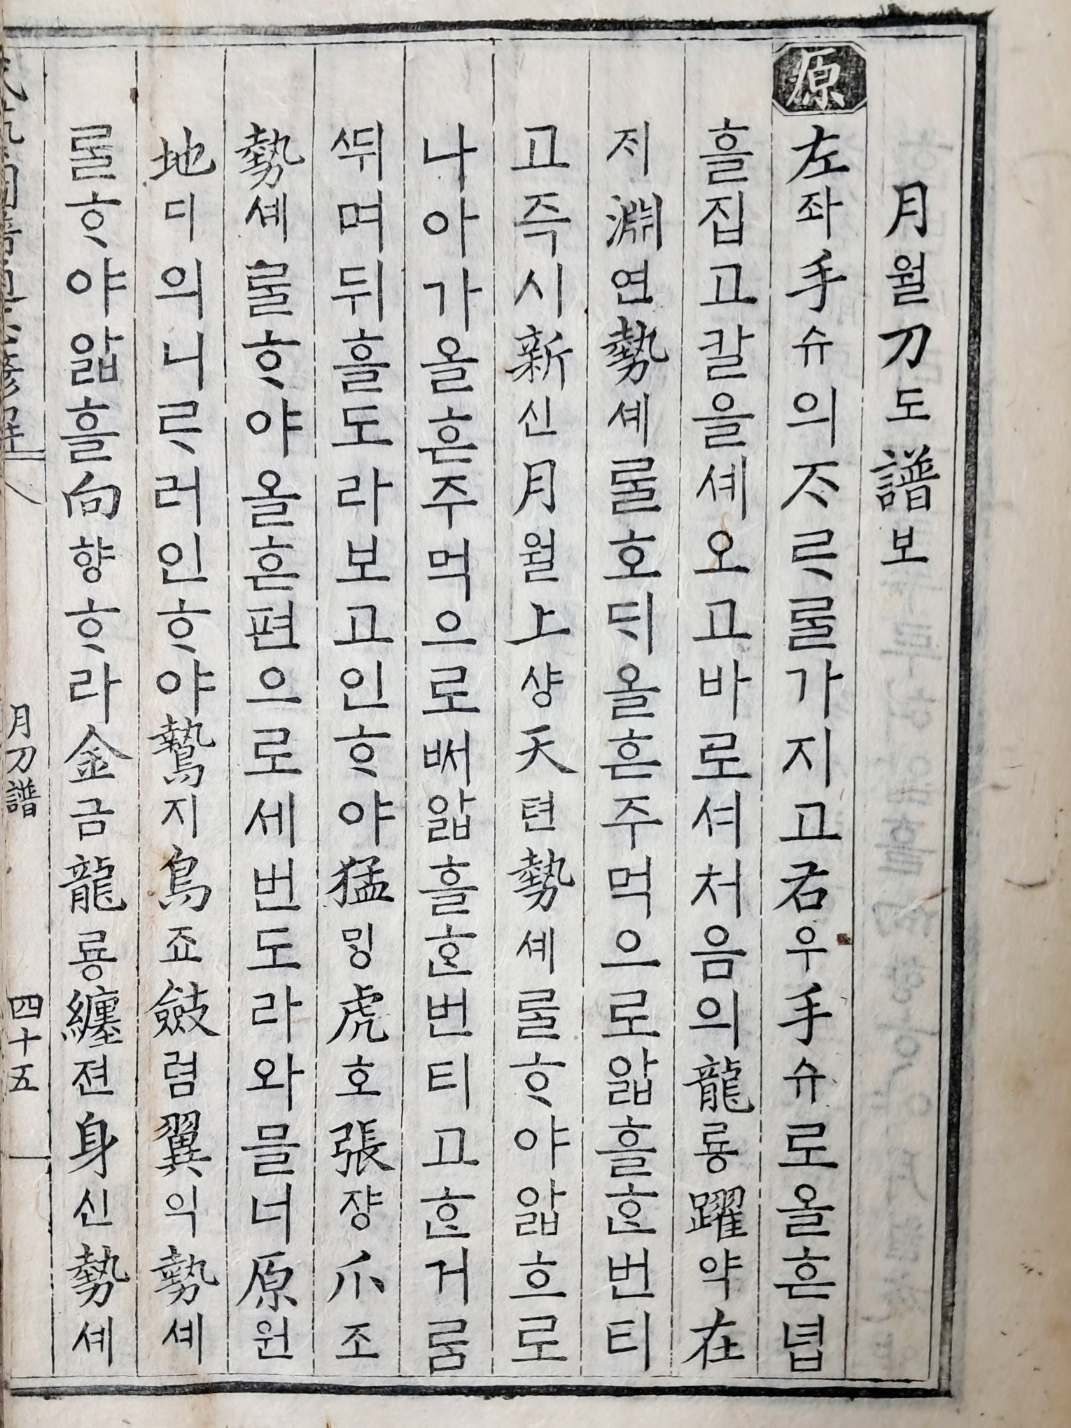 月월刀도譜보
原
左좌手슈의ᄌᆞᄅᆞᆯ가지고右우手슈로올흔녑
흘집고칼을셰오고바로셔처음의龍룡躍약在
ᄌᆡ淵연勢셰ᄅᆞᆯ호ᄃᆡ올흔주먹으로앏흘ᄒᆞᆫ번티
고즉시新신月월上샹天텬勢셰ᄅᆞᆯᄒᆞ야앏흐로
나아가올흔주먹으로ᄡᅥ앏흘ᄒᆞᆫ번티고ᄒᆞᆫ거름
ᄯᅱ며뒤흘도라보고인ᄒᆞ야猛ᄆᆡᆼ虎호張쟝爪조
勢셰ᄅᆞᆯᄒᆞ야올흔편으로세번도라와믈너原원
地디의니ᄅᆞ러인ᄒᆞ야鷙지鳥죠斂렴翼익勢셰
ᄅᆞᆯᄒᆞ야앏흘向향ᄒᆞ라金금龍룡纏젼身신勢셰
月刀譜
四十五